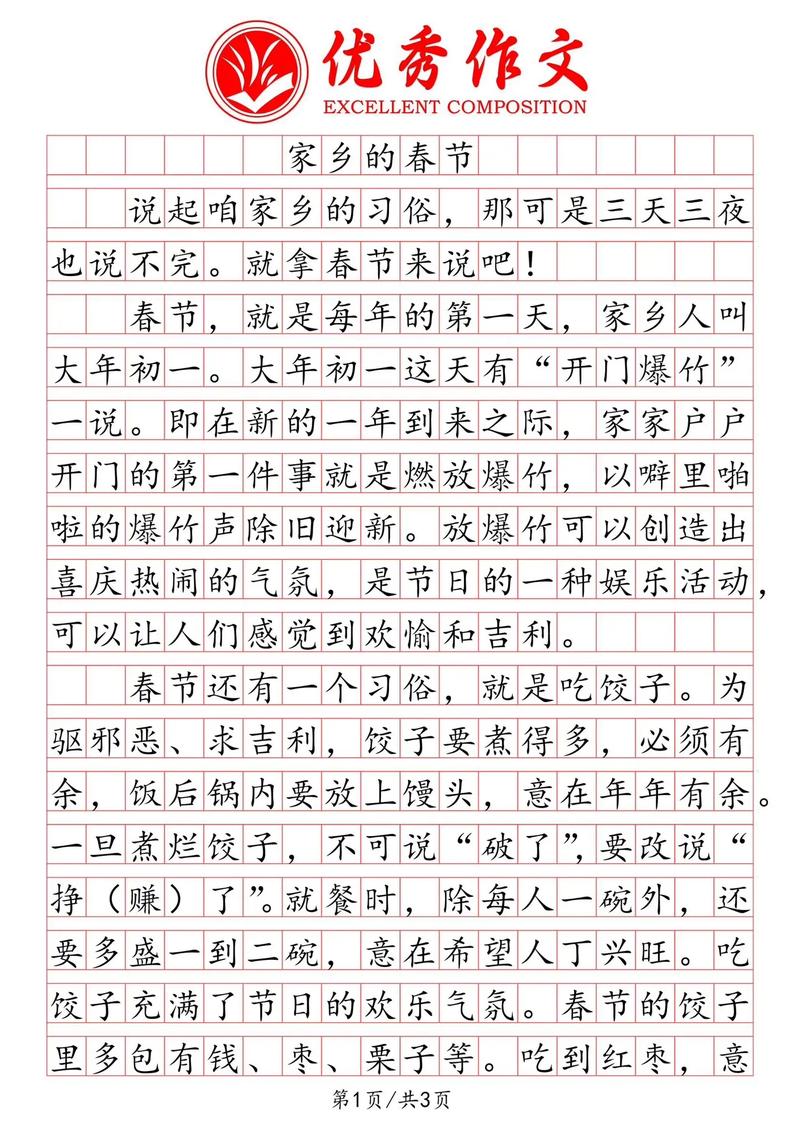 优秀作文
EXCELLENT COMPOSITION
家乡的春节
说起咱家乡的习俗，那可是三天三夜
也说不完。就拿春节来说吧！
春节，就是每年的第一天，家乡人叫
大年初一。大年初一这天有“开门爆竹”
一说。即在新的一年到来之际，家家户户
开门的第一件事就是燃放爆竹，以噼里啪
啦的爆竹声除旧迎新。放爆竹可以创造出
喜庆热闹的气氛，是节日的一种娱乐活动，
可以让人们感觉到欢愉和吉利。
春节还有一个习俗，就是吃饺子。为
驱邪恶、求吉利，饺子要煮得多，必须有
余，饭后锅内要放上馒头，意在年年有余。
一旦煮烂饺子，不可说“破了”，要改说“
挣（赚）了”。就餐时，除每人一碗外，还
要多盛一到二碗，意在希望人丁兴旺。吃
饺子充满了节日的欢乐气氛。春节的饺子
里多包有钱、枣、栗子等。吃到红枣，意
第1页/共3页